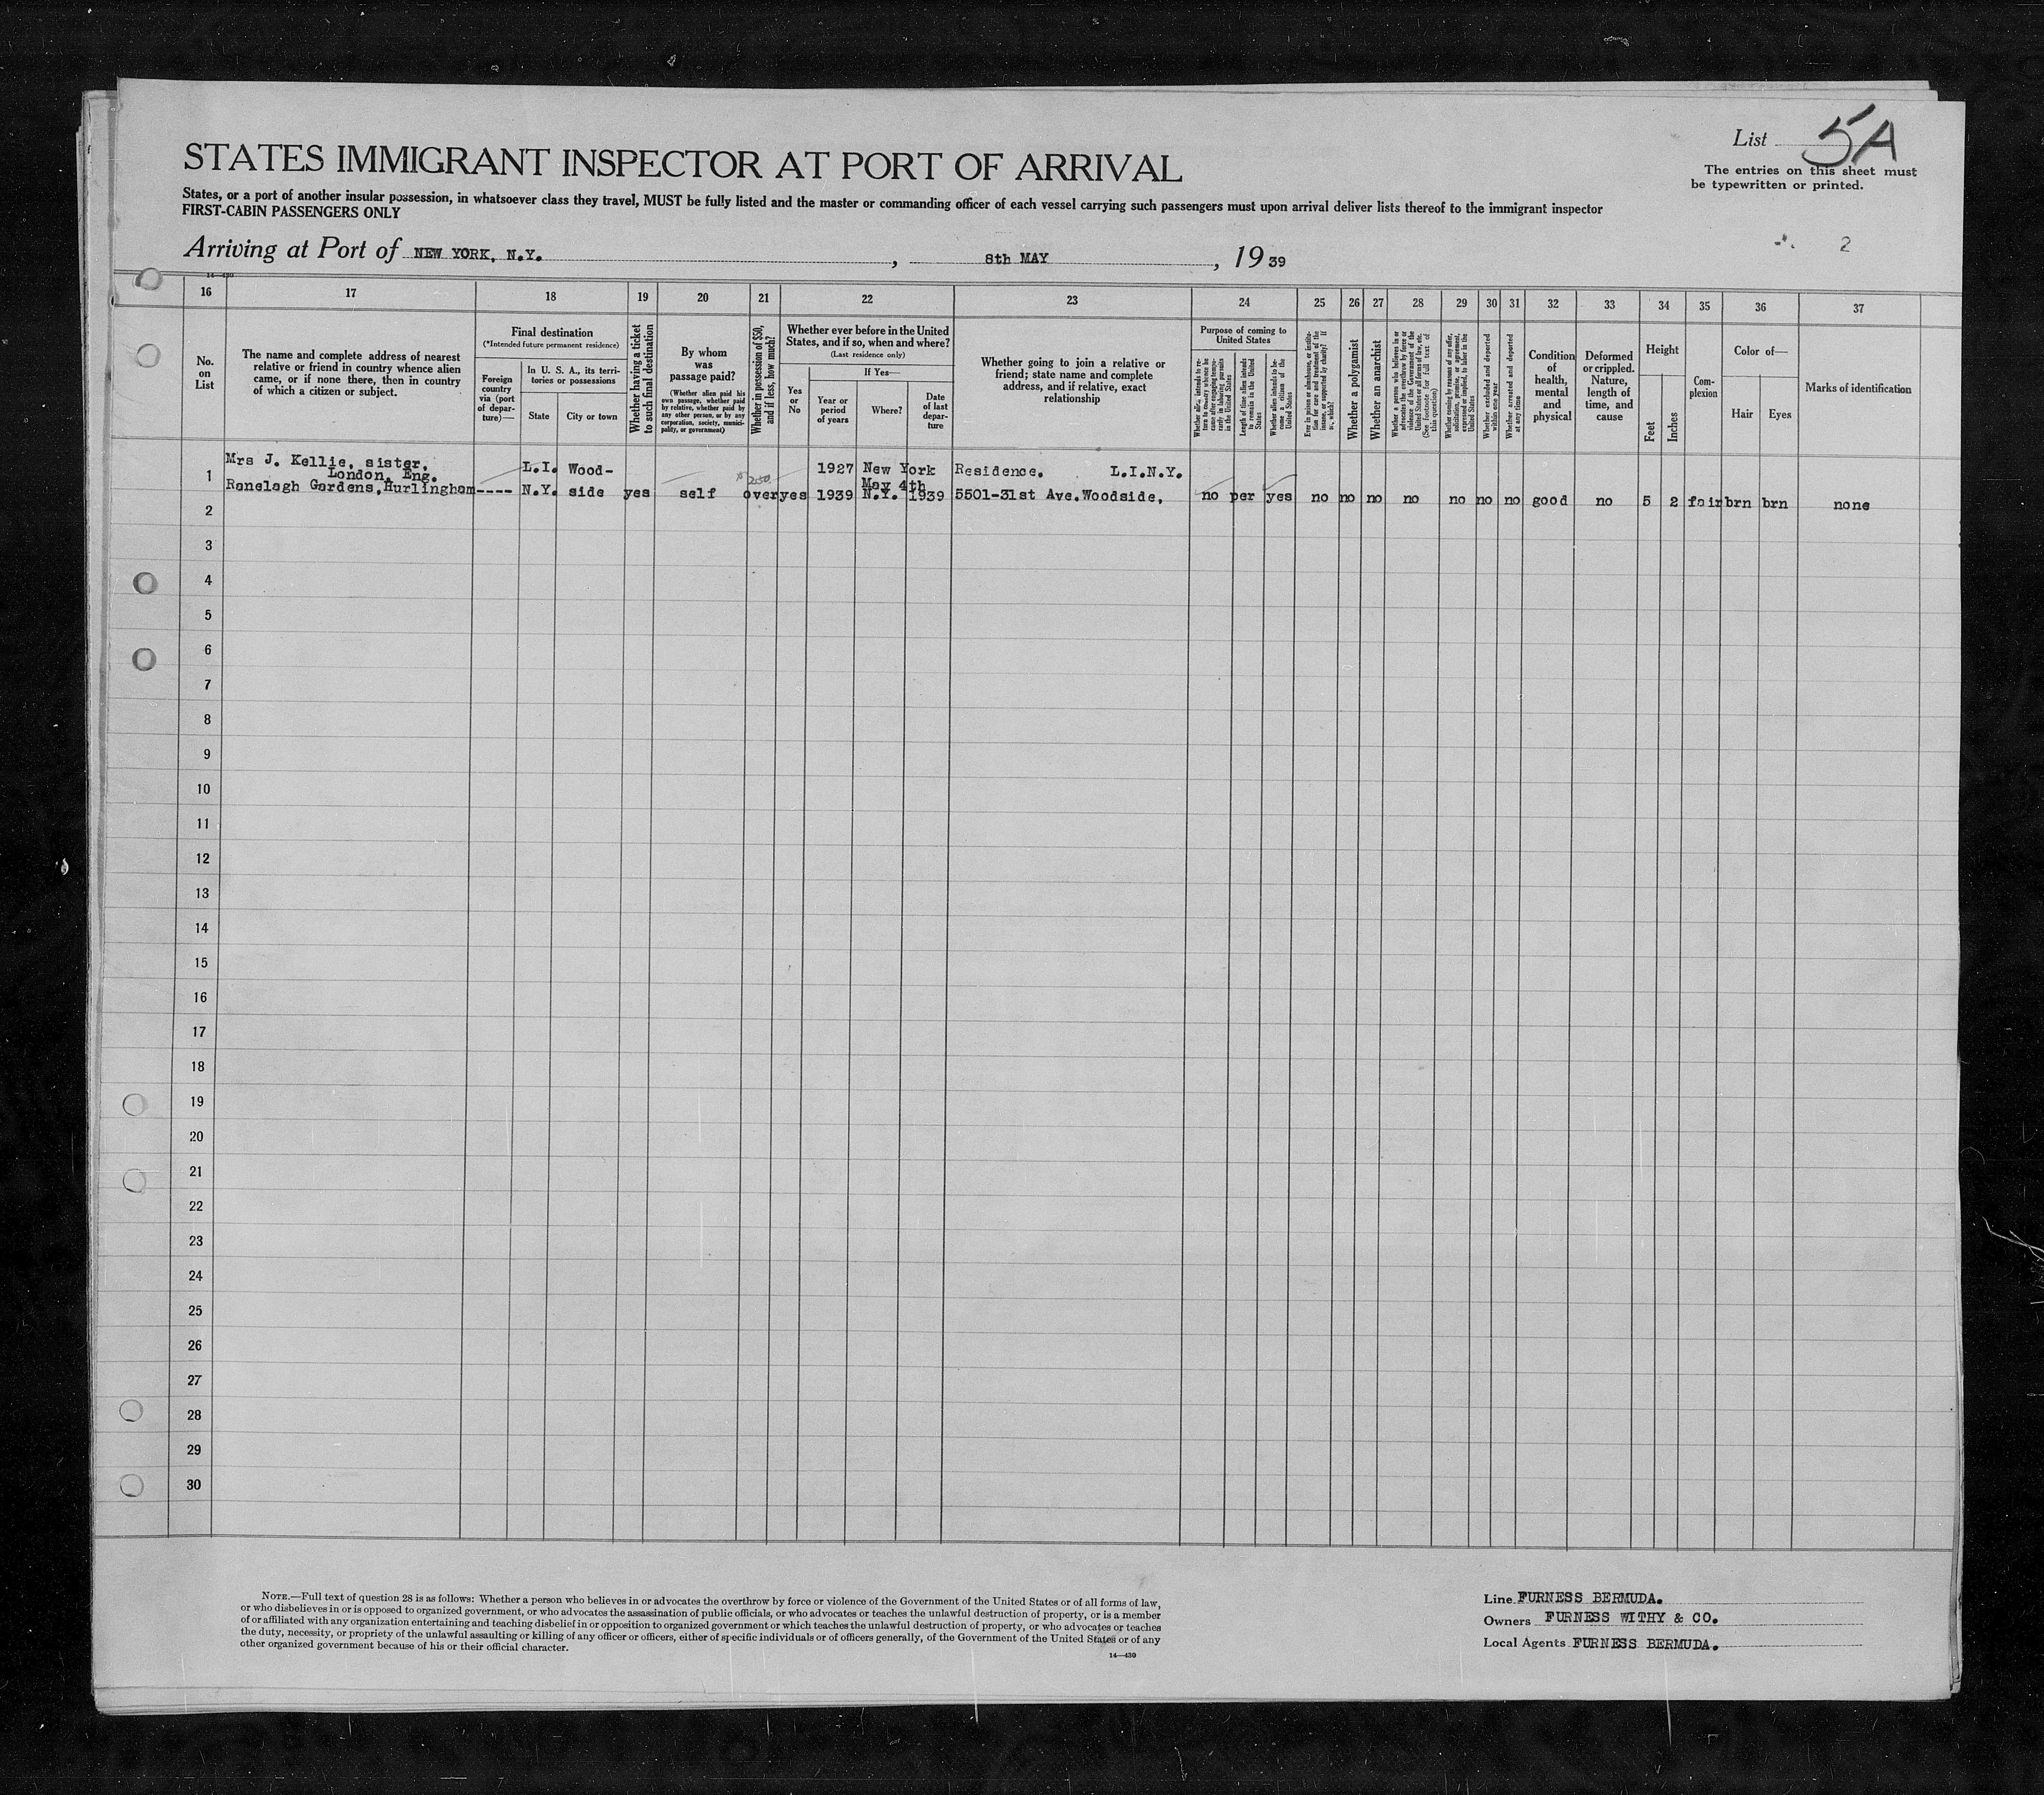 List 5A
The entries on this sheet must
be typewritten or printed.
STATES IMMIGRANT INSPECTOR AT PORT OF ARRIVAL
States, or a port of another insular possession, in whatsoever class they travel, MUST be fully listed and the master or commanding officer of each vessel carrying such passengers must upon arrival deliver lists thereof to the immigrant inspector
FIRST-CABIN PASSENGERS ONLY
Arriving at Port of NEW YORK, N.Y. , 8th MAY , 19 39
2
14—430
16 17 18 19 20 21 22 23 24 25 26 27 28 29 30 31 32 33 34 35 36 37
No.
on
List
The name and complete address of nearest
relative or friend in country whence alien
came, or if none there, then in country
of which a citizen or subject.
Final destination
(*Intended future permanent residence)
Foreign
country
via (port
of depar-
ture)—
In U. S. A., its terri-
tories or possessions
State
City or town
Whether having a ticket
to such final destination
By whom
was
passage paid?
(Whether alien paid his
own passage, whether paid
by relative, whether paid by
any other person, or by any
corporation, society, munici-
pality, or government)
Whether in possession of $50,
and if less, how much?
Whether ever before in the United
States, and if so, when and where?
(Last residence only)
Yes
or
No
If Yes—
Year or
period
of years
Where?
Date
of last
depar-
ture
Whether going to join a relative or
friend; state name and complete
address, and if relative, exact
relationship
Purpose of coming to
United States
Whether alien intends to re-
turn to country whence he
came after engaging tempo-
rarily in laboring pursuits
in the United States
Length of time alien intends
to remain in the United
States
Whether alien intends to be-
come a citizen of the
United States
Ever in prison or almshouse, or institu-
tion for care and treatment of the
insane, or supported by charity? If
so, which?
Whether a polygamist
Whether an anarchist
Whether a person who believes in or
advocates the overthrow by force or
violence of the Government of the
United States or all forms of law, etc.
(See footnote for full text of
this question)
Whether coming by reasons of any offer,
solicitation, promise, or agreement,
expressed or implied, to labor in the
United States
Whether excluded and deported
within one year
Whether arrested and deported
at any time
Condition
of
health,
mental
and
physical
Deformed
or crippled.
Nature,
length of
time, and
cause
Height
Feet
Inches
Com-
plexion
Color of—
Hair
Eyes
Marks of identification
Mrs J. Kellie, sister, L.I. Wood- 1927 New York Residence. L.I.N.Y.
1 London, Eng. 200 May 4th
Ranelagh Gardens, Hurlingham ---- N.Y. side yes self over yes 1939 N.Y. 1939 5501-31st Ave.Woodside, no per yes no no no no no no no good no 5 2 fair brn brn none
2
3
4
5
6
7
8
9
10
11
12
13
14
15
16
17
18
19
20
21
22
23
24
25
26
27
28
29
30
NOTE.—Full text of question 28 is as follows: Whether a person who believes in or advocates the overthrow by force or violence of the Government of the United States or of all forms of law,
or who disbelieves in or is opposed to organized government, or who advocates the assassination of public officials, or who advocates or teaches the unlawful destruction of property, or is a member
of or affiliated with any organization entertaining and teaching disbelief in or opposition to organized government or which teaches the unlawful destruction of property, or who advocates or teaches
the duty, necessity, or propriety of the unlawful assaulting or killing of any officer or officers, either of specific individuals or of officers generally, of the Government of the United States or of any
other organized government because of his or their official character.
14—430
Line FURNESS BERMUDA.
Owners FURNESS WITHY & CO.
Local Agents FURNESS BERMUDA.